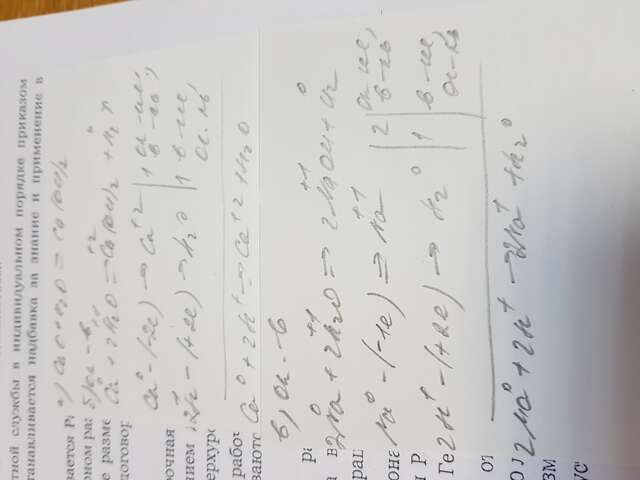 тной службы в индивидуальном порядке приказом
танавливается надбавка за знание и применение в
вается Р
ном ра
е разме
договор
рочная
нием
ерхуро
работ
вают
а) CaO + H2O = Ca(OH)2
б) Ок - в
Ca⁰ + 2H2O = Ca(OH)2 + H2↑
Ca⁰ - (-2e) → Ca⁺² | 1 ок-ие, в-ль
2H⁺ - (+2e) → H2⁰ | 1 в-ие, ок-ль
Ca⁰ + 2H⁺ → Ca⁺² + H2⁰
в) Ок - в
2Na⁰ + 2H2O → 2NaOH + H2
Na⁰ - (-1e) = Na⁺¹ | 2 | ок-ие, в-ль
2H⁺ - (+2e) → H2⁰ | 1 | в-ие, ок-ль
2Na⁰ + 2H⁺ → 2Na⁺ + H2⁰